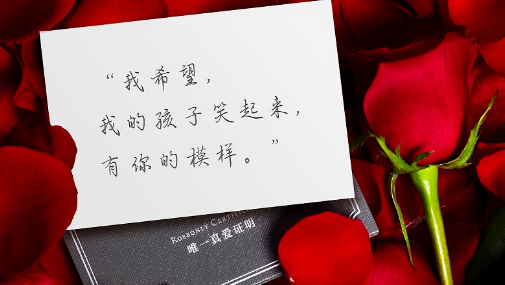 “我希望，
我的孩子笑起来，
有你的模样。”
ROSEONLY CERTIFI
唯一真爱证明